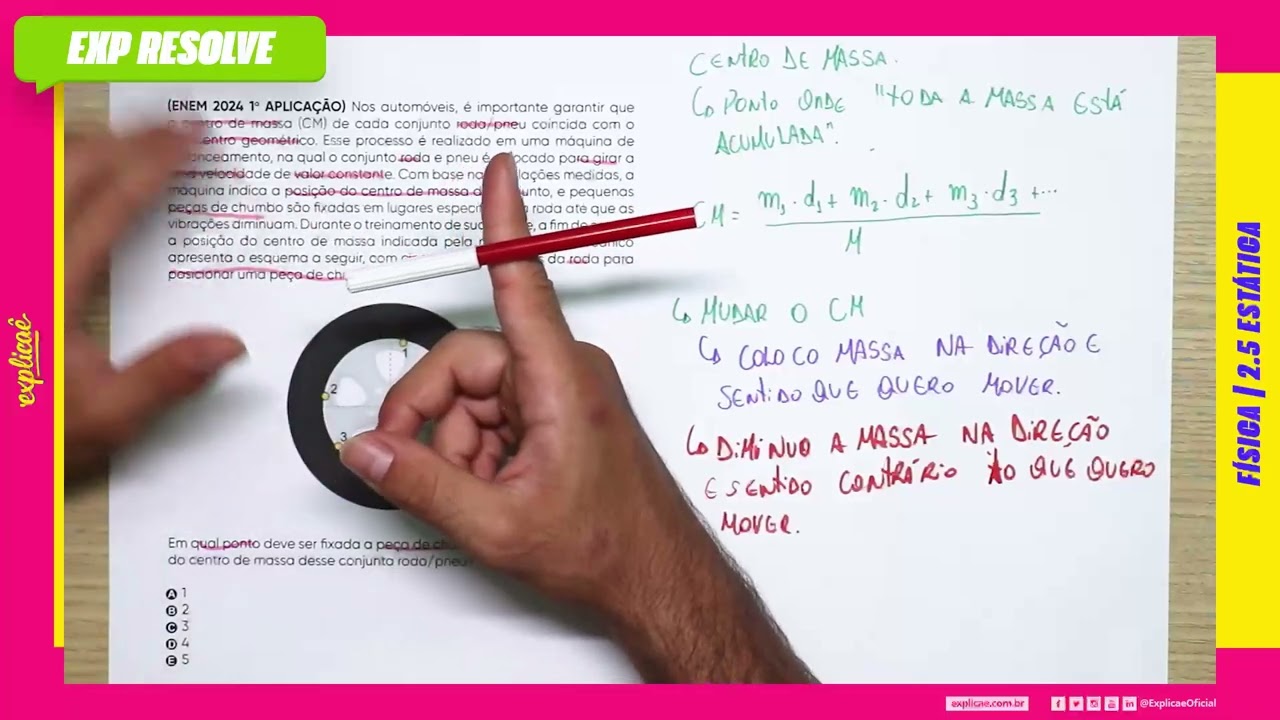 EXP RESOLVE
(ENEM 2024 1ª APLICAÇÃO) Nos automóveis, é importante garantir que
de massa (CM) de cada conjunto roda/pneu coincida com o
geométrico. Esse processo é realizado em uma máquina de
na qual o conjunto roda e pneu é para girar a
velocidade de valor constante. Com base medidas, a
máquina indica a posição do centro de massa e pequenas
peças de chumbo são fixadas em lugares roda até que as
vibrações diminuam. Durante o treinamento de a fim de
a posição do centro de massa indicada pela
apresenta o esquema a seguir, com da roda para
posicionar uma peça de
1
2
3
Em qual ponto deve ser fixada a peça de
do centro de massa desse conjunto roda/pneu
A 1
B 2
C 3
D 4
E 5
CENTRO DE MASSA.
PONTO ONDE "TODA A MASSA ESTÁ
ACUMULADA".
CM = m1 · d1 + m2 · d2 + m3 · d3 + ...
M
MUDAR O CM
COLOCO MASSA NA DIREÇÃO E
SENTIDO QUE QUERO MOVER.
DIMINUO A MASSA NA DIREÇÃO
E SENTIDO CONTRÁRIO AO QUE QUERO
MOVER.
explicaê
FÍSICA | 2.5 ESTÁTICA
explicae.com.br
@ExplicaeOficial